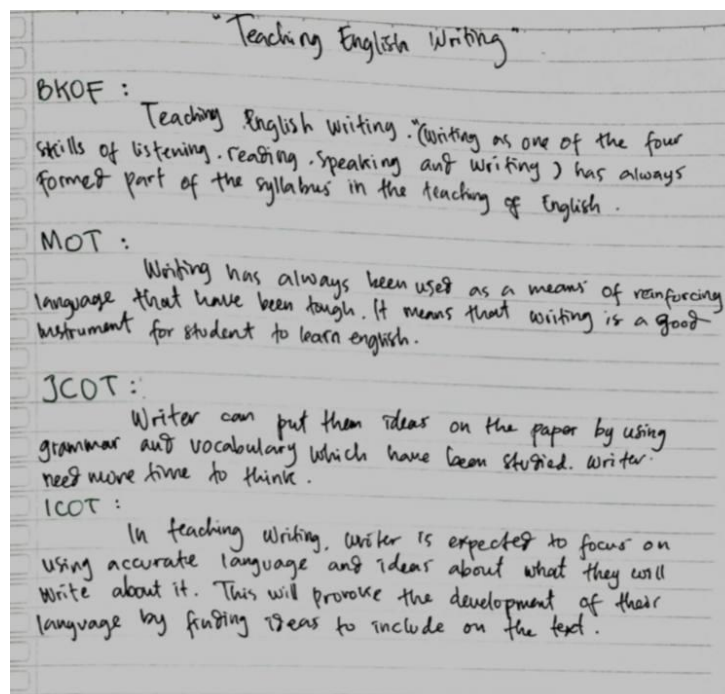 "Teaching English Writing"
BKOF :
Teaching English writing. "(Writing as one of the four
skills of listening. reading. speaking and writing) has always
formed part of the syllabus in the teaching of English.
MOT :
Writing has always been used as a means of reinforcing
language that have been tough. It means that writing is a good
instrument for student to learn english.
JCOT :
Writer can put them ideas on the paper by using
grammar and vocabulary which have been studied. Writer
need more time to think.
ICOT :
In teaching writing, writer is expected to focus on
using accurate language and ideas about what they will
write about it. This will provoke the development of their
language by finding ideas to include on the text.